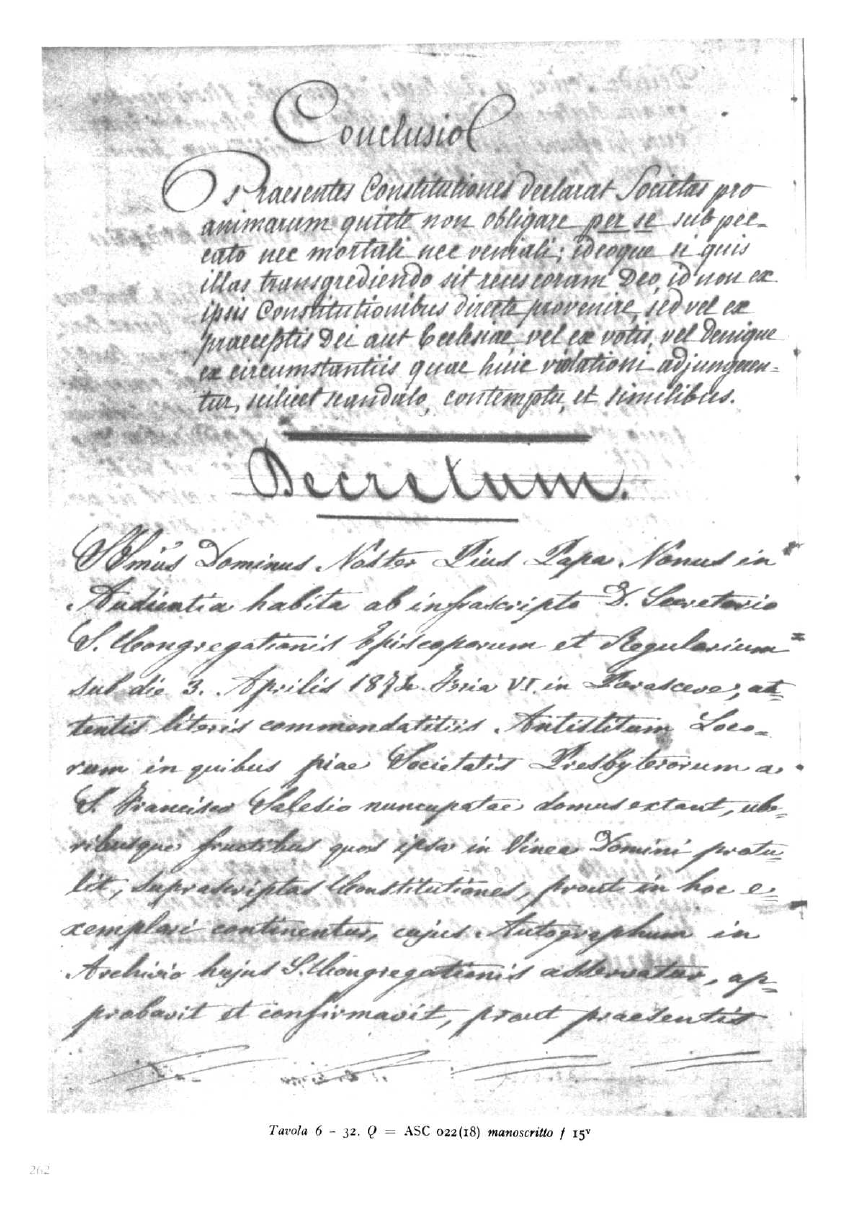 Conclusio
Praesentes Constitutiones declarat Societas pro
animarum quiete non obligare per se sub pec-
cato nec mortali nec veniali; ideoque si quis
illas transgrediendo sit reus coram Deo, id non ex
ipsis Constitutionibus directe provenire, sed vel ex
praeceptis Dei aut Ecclesiae vel ex votis, vel denique
ex circumstantiis quae huic violationi adjunguen-
tur, scilicet scandalo, contemptu, et similibus.
Decretum.
SSmus Dominus Noster Pius Papa Nonus in
Audientia habita ab infrascripto D. Secretario
S. Congregationis Episcoporum et Regularium
sub die 3. Aprilis 1874 Feria VI in Parasceve, at-
tentis literis commendatitiis Antistitum Loco-
rum in quibus piae Societatis Presbyterorum a
S. Francisco Salesio nuncupatae domus extant, ube-
ribusque fructibus quos ipsa in Vinea Domini protu-
lit, suprascriptas Constitutiones, prout in hoc e-
xemplari continentur, cujus Autographum in
Archivio hujus S. Congregationis asservatur, ap-
probavit et confirmavit, prout praesentis
Tavola 6 - 32. Q = ASC 022(18) manoscritto f 15v
262